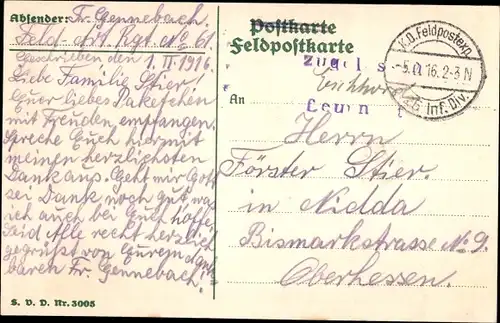 Absender: Fr. Gennebach.
Feld-Art. Rgt. No 61.
Geschrieben den 1. II. 1916
Liebe Familie Stier!
Euer liebes Paketchen
mit Freuden empfangen.
Spreche Euch hiermit
meinen herzlichsten
Dank aus. Geht mir Gott
sei Dank noch gut, was
ich auch bei Euch hoffe.
Seid Alle recht herzlich
gegrüßt von Eurem dank-
baren Fr. Gennebach.
S. V. D. Nr. 3005
Postkarte
Feldpostkarte
K.D. Feldpostexp.
-5. 16. 2-3 N
Inf. Div.
An
Herrn
Förster Stier.
in Nidda
Bismarkstrasse No 9.
Oberhessen.